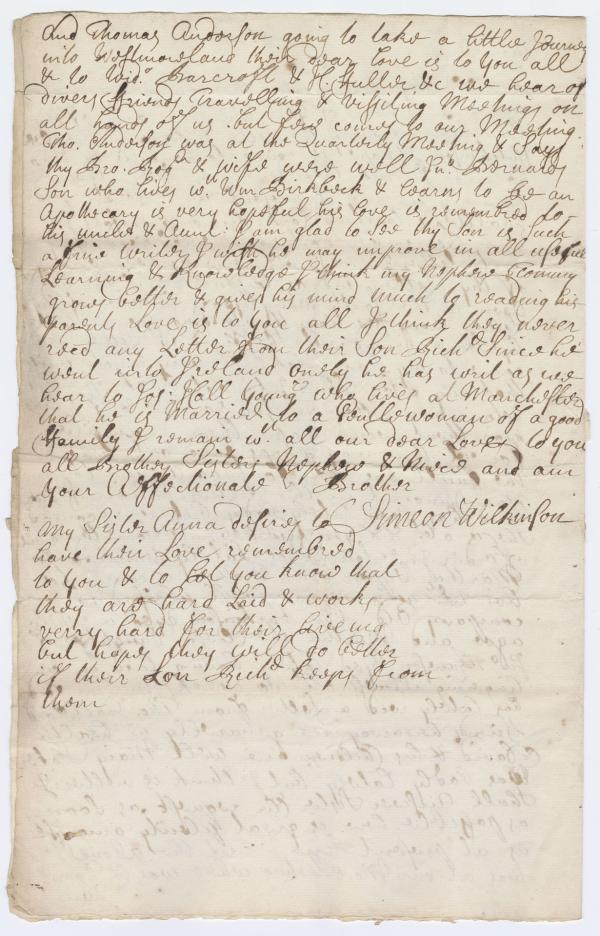 And Thomas Anderson going to take a little Journey
into Westmoreland their dear Love is to You all
& to Wid.ᵒ Barcroft & H. Fuller &c we hear of
divers Friends Travelling & Vissiting Meetings on
all hands of us but few comes to our Meeting.
Tho. Anderson was at the Quarterly Meeting & Says
thy Bro. Rogʳ & wife were well Jnᵒ Bernards
Son who lives wᵗʰ Wm Birkbeck & learns to be an
Apothecary is very hopeful his love is remembred to
his uncle & Aunt I am glad to see thy Son is Such
a fine writer I wish he may improve in all useful
Learning & Knowledge I think my Nephew Tommy
grows better & gives his mind much to reading his
parents Love is to You all I think they never
recd any Letter from their Son Richᵈ Since he
went into Ireland onely he has writ as we
hear to Jos: Hall Youngʳ who lives at Manchester
that he is Married to a Gentlewoman of a good
Family I remain wᵗʰ all our dear Loves to you
all Brother Sisters Nephew & Niece and am
Your Affectionate Brother
Simeon Wilkinson
my Sister Anna desires to
have their Love remembred
to You & to let You know that
they are hard Laid & works
verry hard for their liveing
but hopes they will do better
if their Son Richᵈ keeps from
them